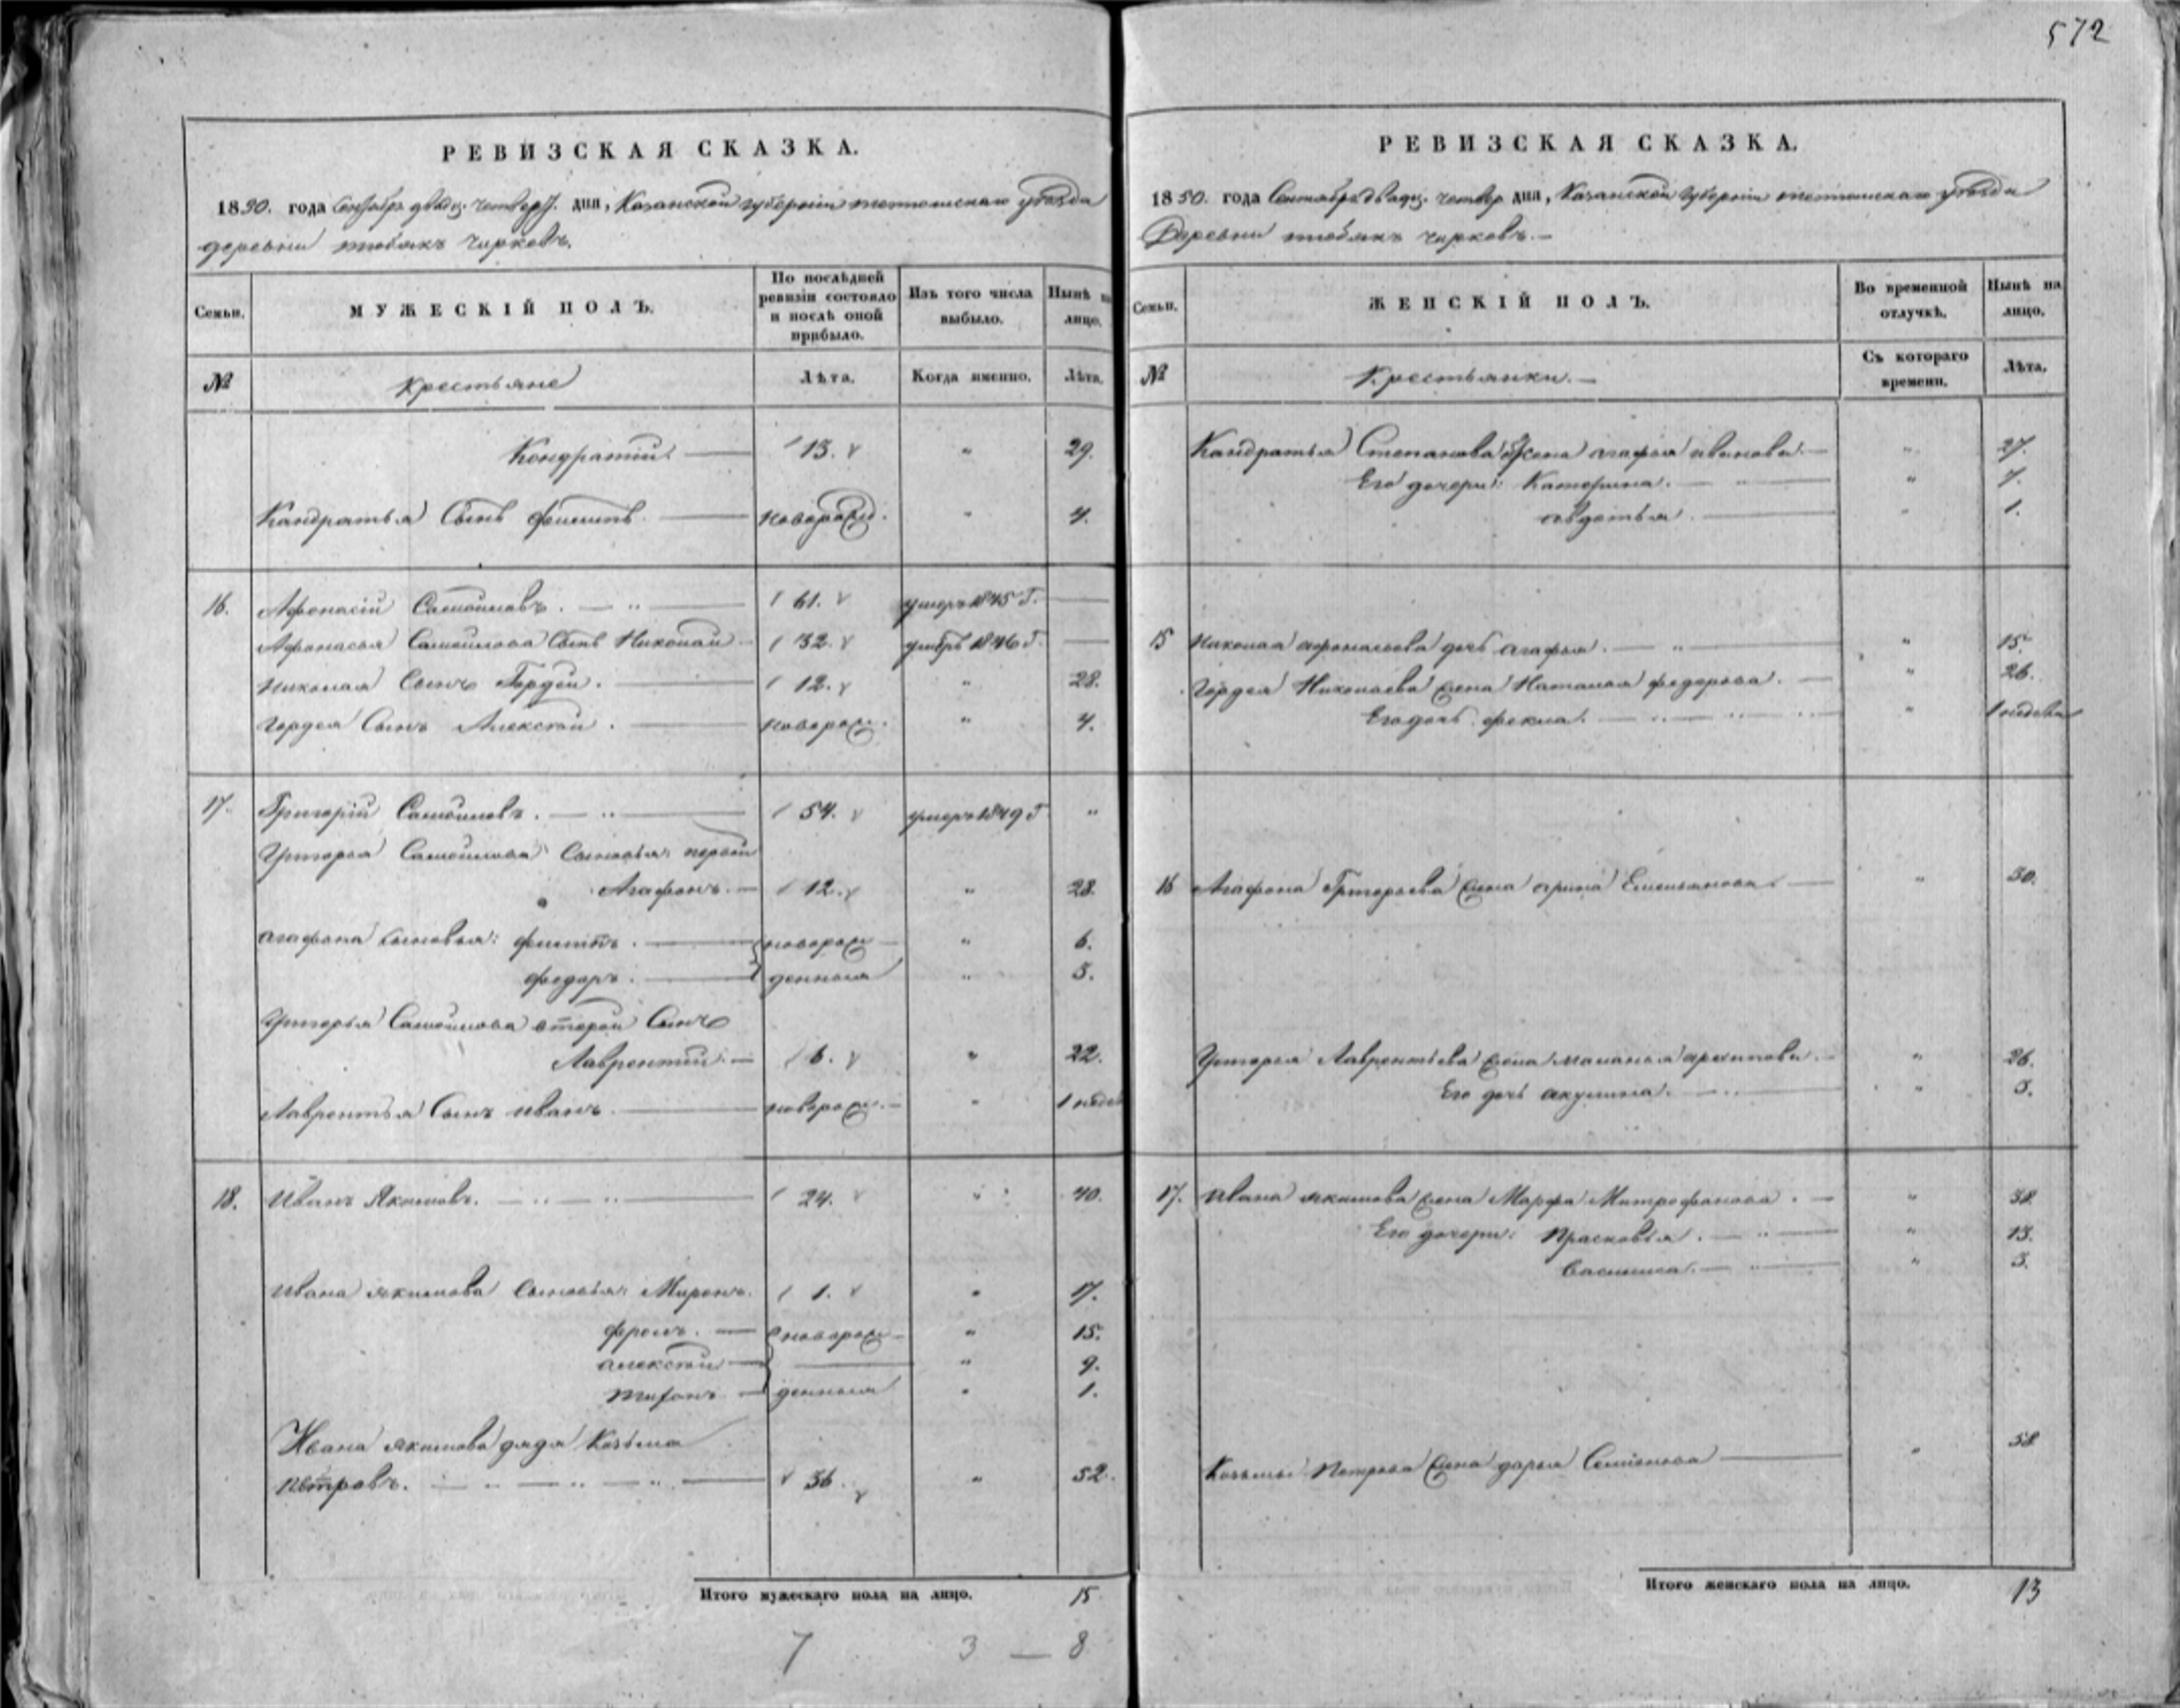 572
РЕВИЗСКАЯ СКАЗКА.
1850. года Сентября двадц. четверт. дня, Казанской губернии тетюшскаго уѣзда
деревни чирковъ.
Семьи. МУЖЕСКІЙ ПОЛЪ. По послѣдней ревизіи состояло и послѣ оной прибыло. Изъ того числа выбыло. Нынѣ на лицо.
№ Крестьяне Лѣта. Когда именно. Лѣта.
Кондратій. — 13. " 29.
Кандратья Сынъ филипъ — новорожд. " 4.
16. Афонасій Самойловъ. — 61. умеръ 1845 г. —
Афонасья Самойлова Сынъ Николай 32. умеръ 1846 г. —
Николая Сынъ Гордей. — 12. " 28.
Гордея Сынъ Алексѣй. — новорож. " 4.
17. Григорій Самойловъ. — 54. умеръ 1849 г. "
Григорья Самойлова Сыновья: первый
Агафонъ. — 12. " 28.
Агафона сыновья: филипъ. — новорож " 6.
федоръ. — денныя " 3.
Григорья Самойлова второй Сынъ
Лаврентій. — 6. " 22.
Лаврентья Сынъ иванъ. — новорож. — " 1 недѣл
18. Иванъ Якимовъ. — 24. " 40.
Ивана якимова Сыновья: Миронъ. 1. " 17.
фролъ. — новорож— " 15.
алексѣй — " 9.
тифонъ — денныя " 1.
Ивана якимова дядя Козьма
петровъ. — 36. " 52.
Итого мужескаго пола на лицо. 15
7 3 — 8
РЕВИЗСКАЯ СКАЗКА.
1850. года Сентября двадц. четвер. дня, Казанской губерніи тетюшскаго уѣзда
Деревни чирковъ. —
Семьи. ЖЕНСКІЙ ПОЛЪ. Во временной отлучкѣ. Нынѣ на лицо.
№ Крестьянки. — Съ котораго времени. Лѣта.
Кандратья Степанова жена агафья иванова. — " 27.
Его дочери: Катерина. — " 7.
авдотья. — " 1.
15 Николая афонасьева дочь агафья. — " 15.
Гордея Николаева жена Наталья федорова. — " 26.
Его дочь фекла. — " 1 недѣля
16 Агафона Григорьева жена арина Емельянова. — " 30.
Григорья Лаврентьева жена маланья архипова. — " 26.
Его дочь акулина. — " 3.
17. Ивана якимова жена Марфа Митрофанова. — " 38.
Его дочери: Прасковья. — " 13.
Василиса. — " 3.
Козьмы Петрова жена дарья Семіонова — " 58
Итого женскаго пола на лицо. 13